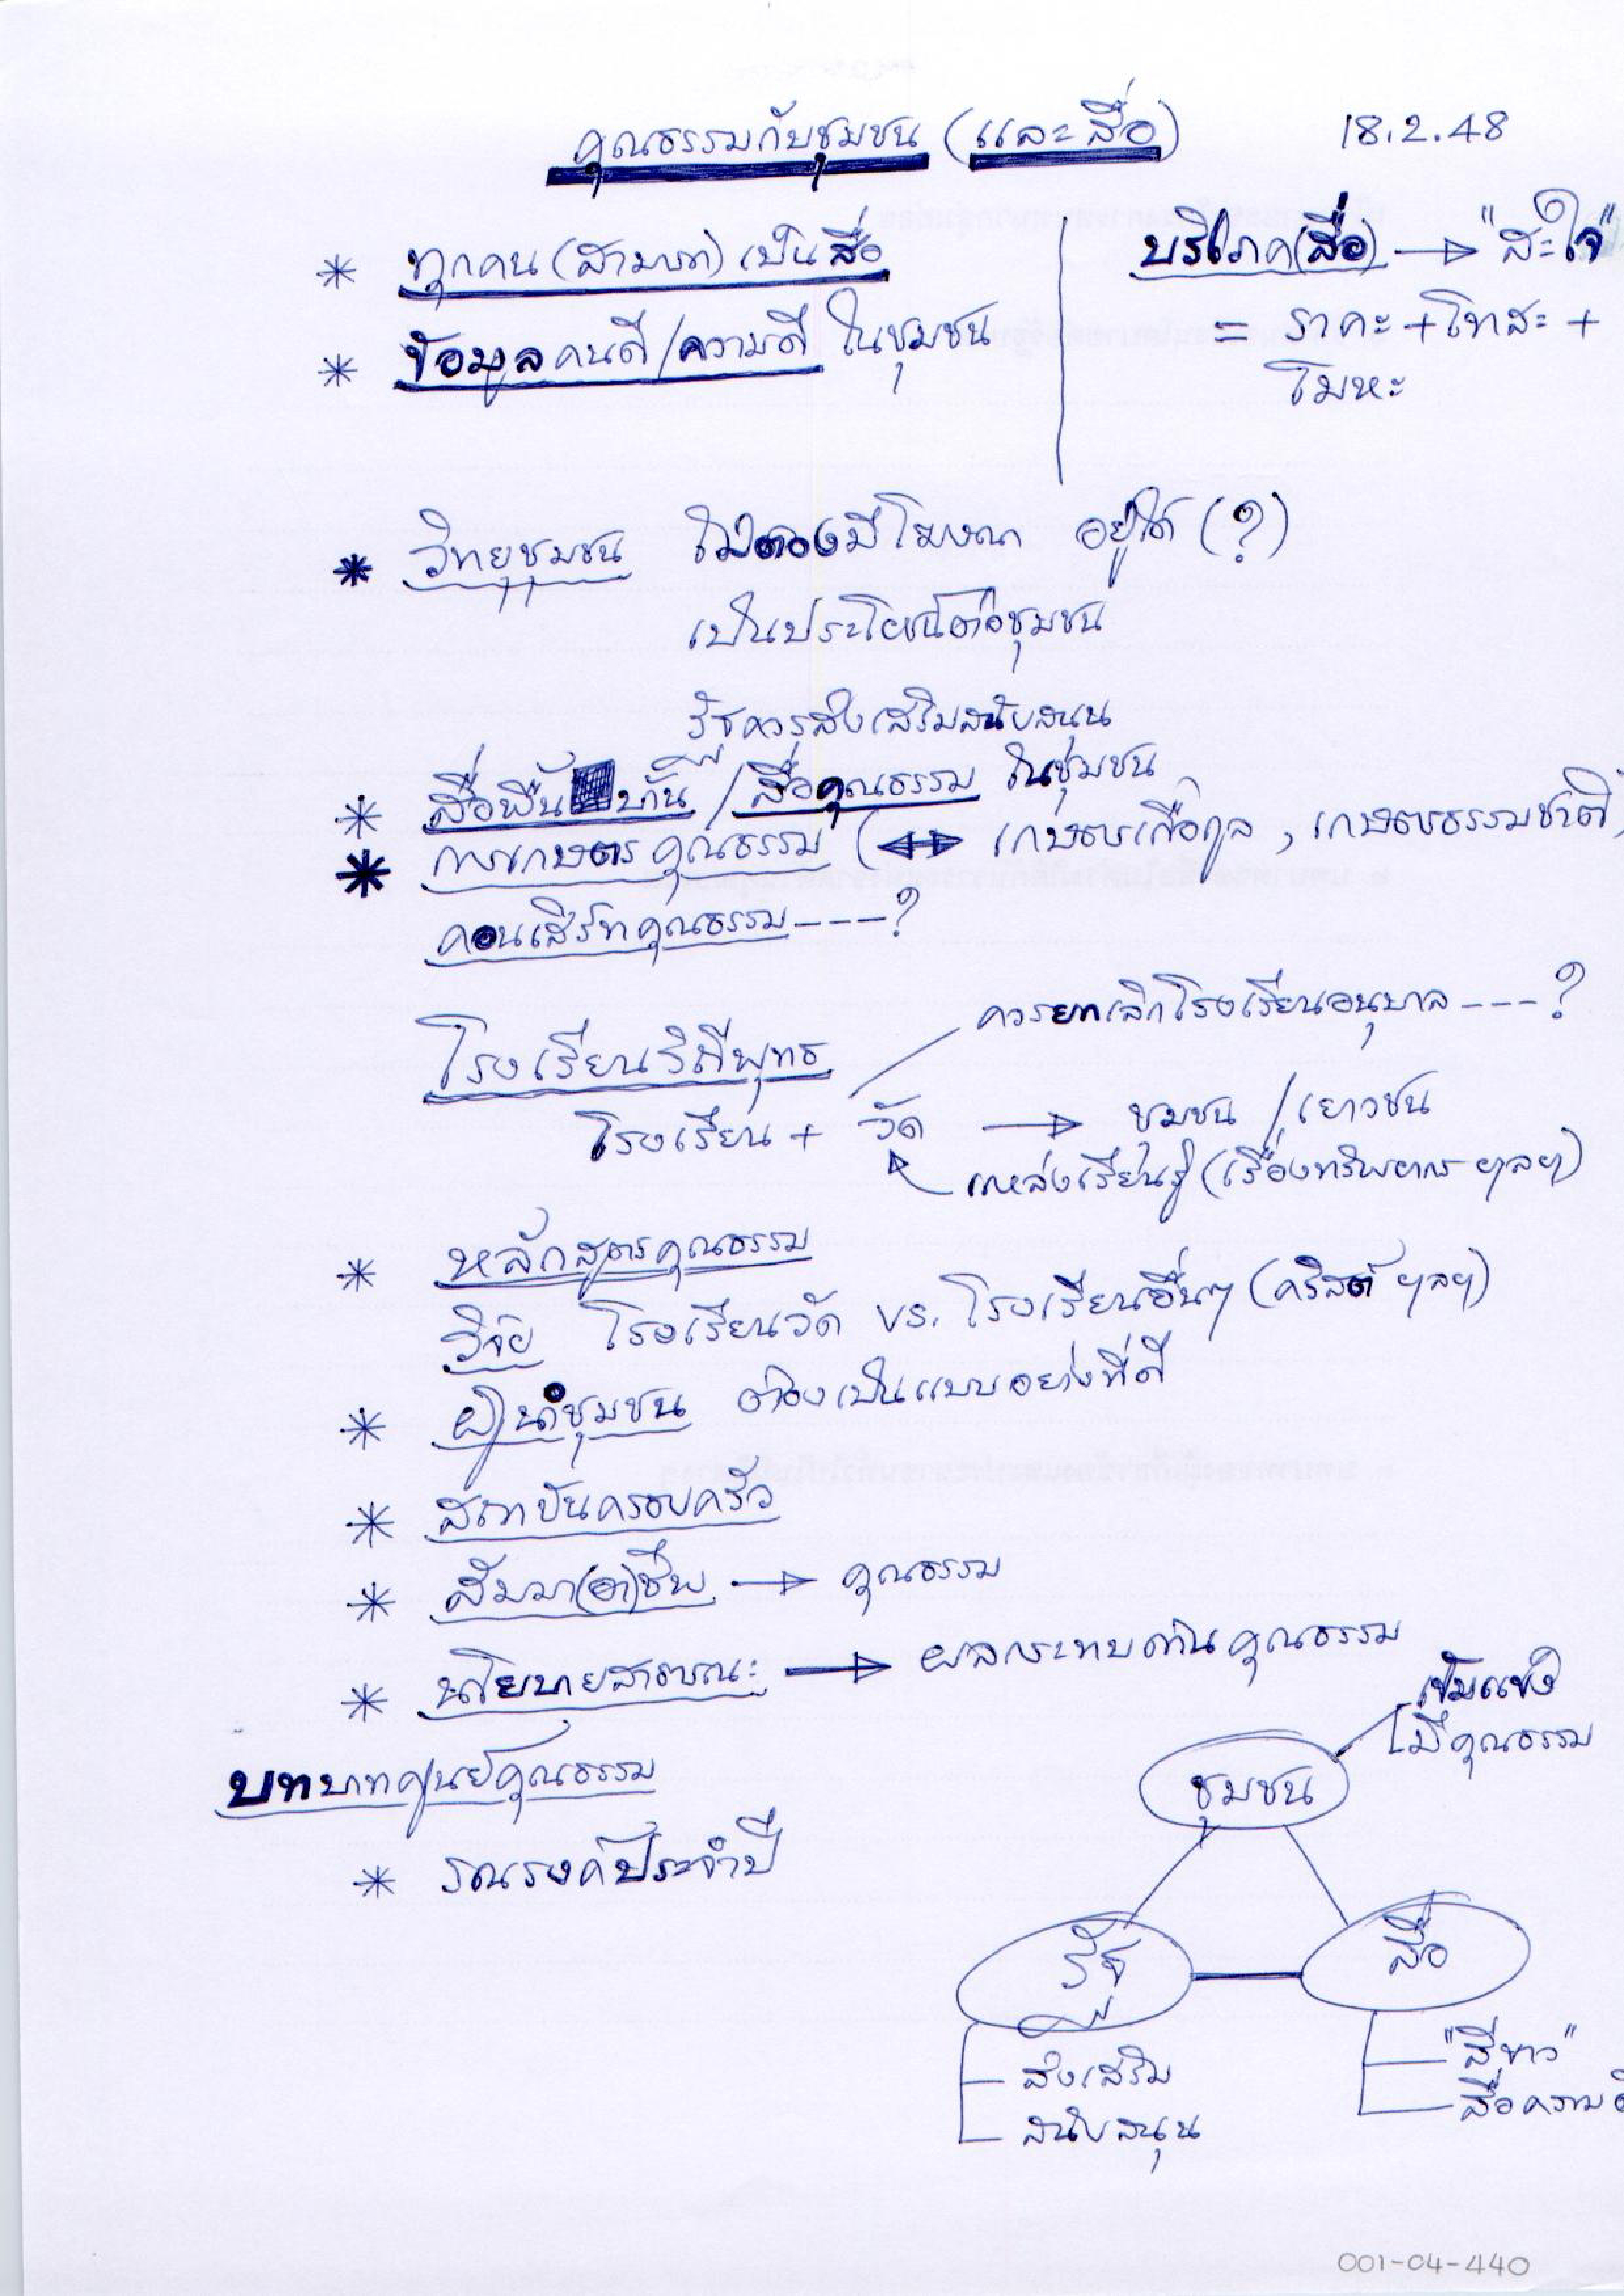 คุณธรรมกับชุมชน (และสื่อ) 18.2.48
* ทุกคน(สามารถ)เป็นสื่อ
* ข้อมูลคนดี/ความดี ในชุมชน
บริโภค(สื่อ) → "สะใจ"
= ราคะ + โทสะ +
โมหะ
* วิทยุชุมชน ไม่ต้องมีโฆษณา อยู่ได้ (?)
เป็นประโยชน์ต่อชุมชน
รัฐควรส่งเสริมสนับสนุน
* สื่อพื้นบ้าน / สื่อคุณธรรม ในชุมชน
* การเกษตรคุณธรรม (↔ เกษตรเกื้อกูล , เกษตรธรรมชาติ)
คอนเสิร์ทคุณธรรม ----?
ควรยกเลิกโรงเรียนอนุบาล ---?
โรงเรียนวิถีพุทธ
โรงเรียน + วัด → ชุมชน / เยาวชน
แหล่งเรียนรู้ (เรื่องทรัพยากร ฯลฯ)
* หลักสูตรคุณธรรม
วิจัย โรงเรียนวัด vs. โรงเรียนอื่นๆ (คริสต์ ฯลฯ)
* ผู้นำชุมชน ต้องเป็นแบบอย่างที่ดี
* สถาบันครอบครัว
* สัมมา(อา)ชีพ → คุณธรรม
* นโยบายสาธารณะ → ผลกระทบด้านคุณธรรม
เข้มแข็ง
มีคุณธรรม
บทบาทศูนย์คุณธรรม
ชุมชน
* รณรงค์ประจำปี
รัฐ สื่อ
ส่งเสริม
สนับสนุน
"สีขาว"
สื่อความ
001-04-440